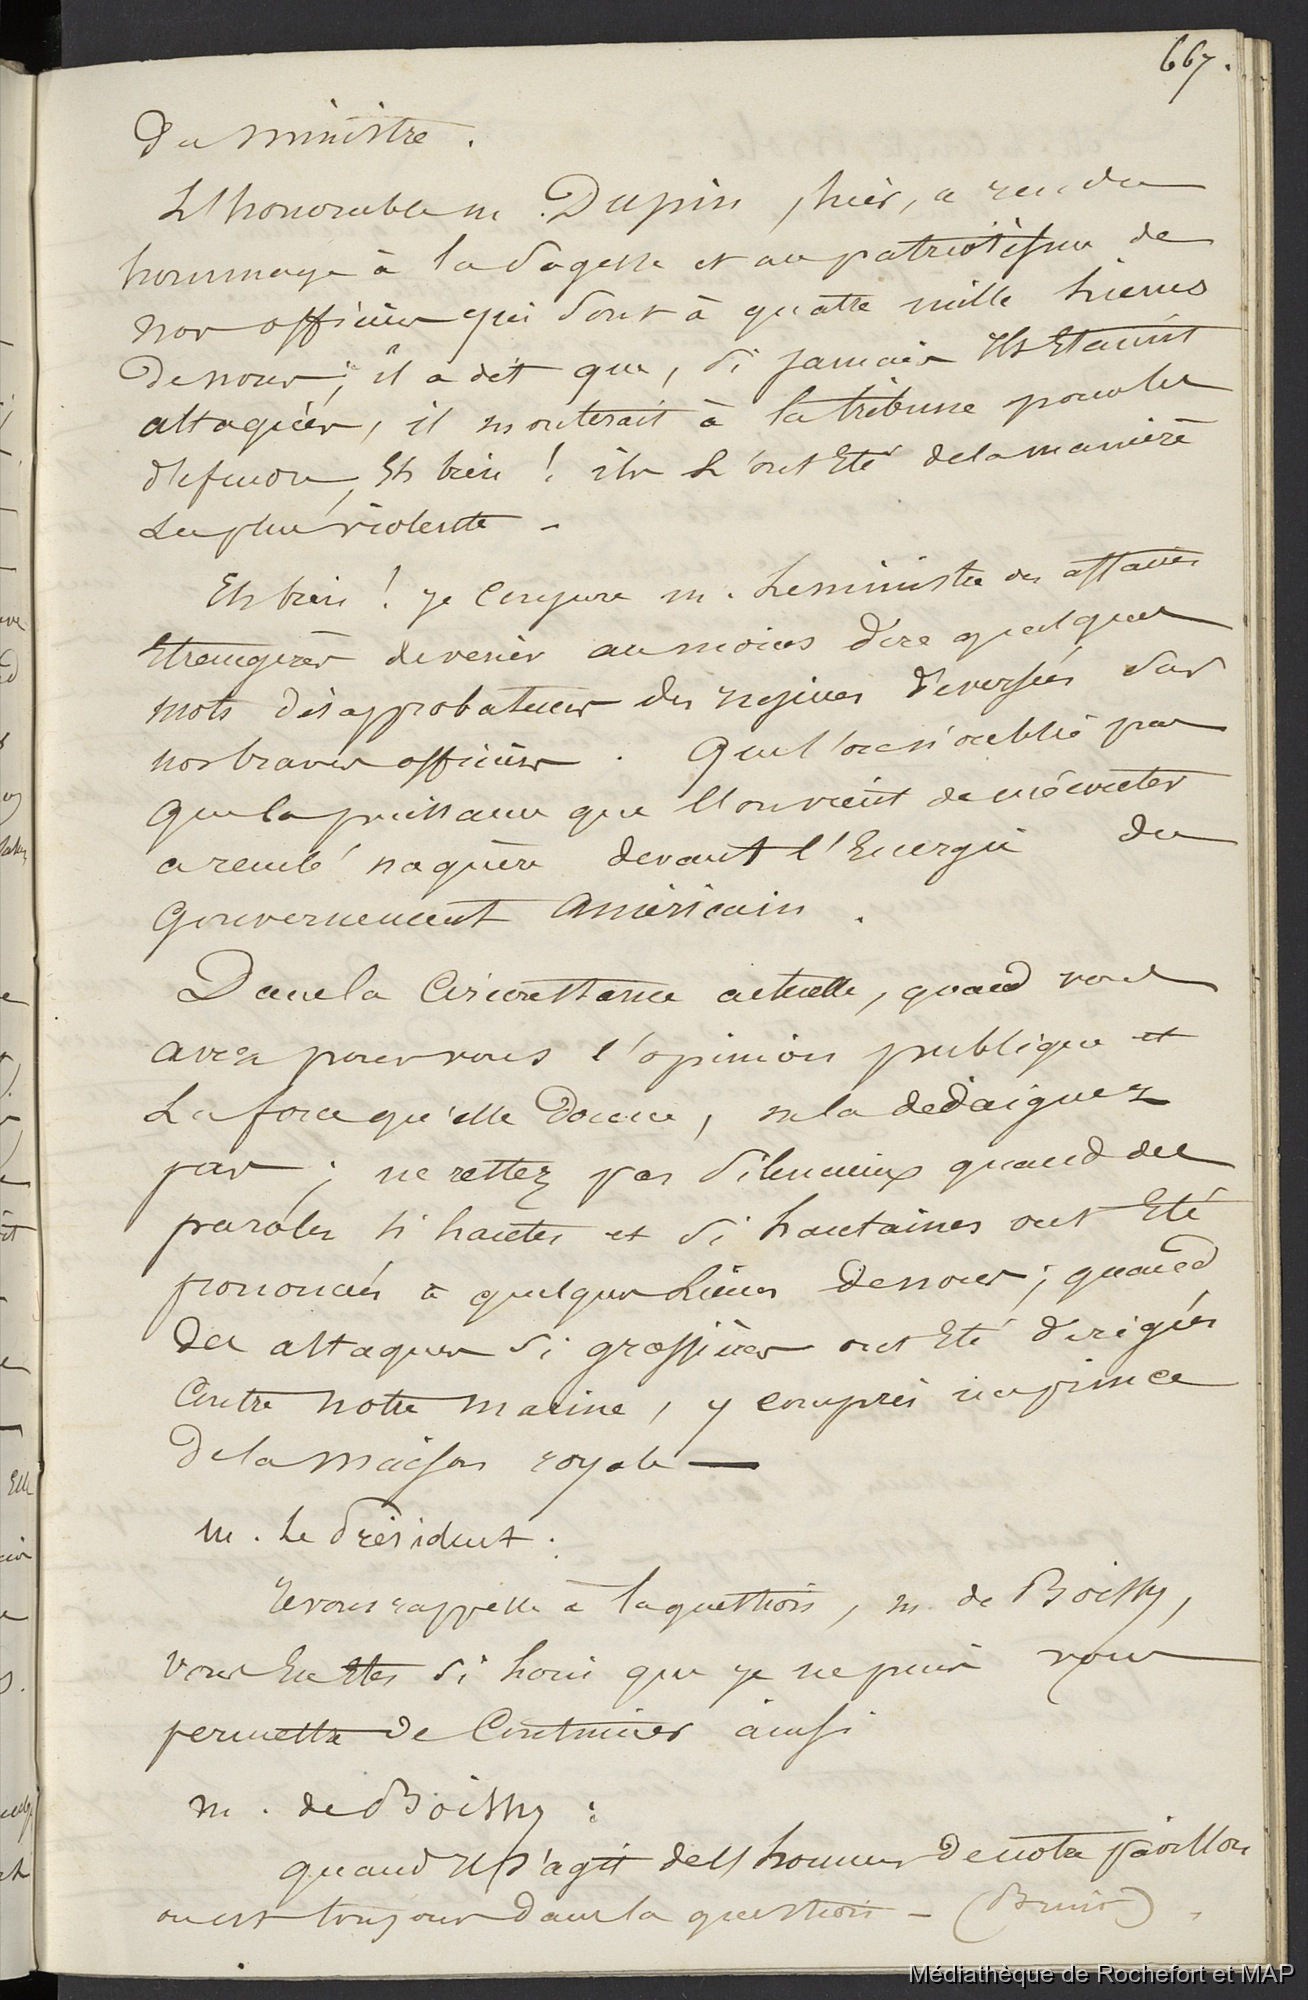 667.
du ministre.
L'honorable m. Dupin, hier, a rendu
hommage à la sagesse et au patriotisme de
nos officiers qui sont à quatre mille lieues
de nous; il a dit que, si jamais ils étaient
attaqués, il monterait à la tribune pour les
défendre, Eh bien! ils l'ont été de la manière
la plus violente -
Eh bien! je conjure m. le ministre des affaires
Etrangères de venir au moins dire quelques
mots désapprobateurs des injures déversées sur
nos braves officiers. Que l'on n'oublie pas
que la puissance que l'on vient de
a reculé naguère devant l'énergie du
gouvernement américain.
Dans la circonstance actuelle, quand vous
avez pour vous l'opinion publique et
la force qu'elle donne, ne la dédaignez
pas; ne restez pas silencieux quand des
paroles si hautes et si hautaines ont été
prononcées à quelques lieues de nous; quand
des attaques si grossières ont été dirigées
contre notre marine, y compris un prince
de la maison royale —
m. le Président.
Je vous rappelle à la question, m. de Boissy,
vous en êtes si loin que je ne puis vous
permettre de continuer ainsi
m. de Boissy:
quand il s'agit de l'honneur de notre pavillon
on est toujours dans la question - (Bruit).
Médiathèque de Rochefort et MAP